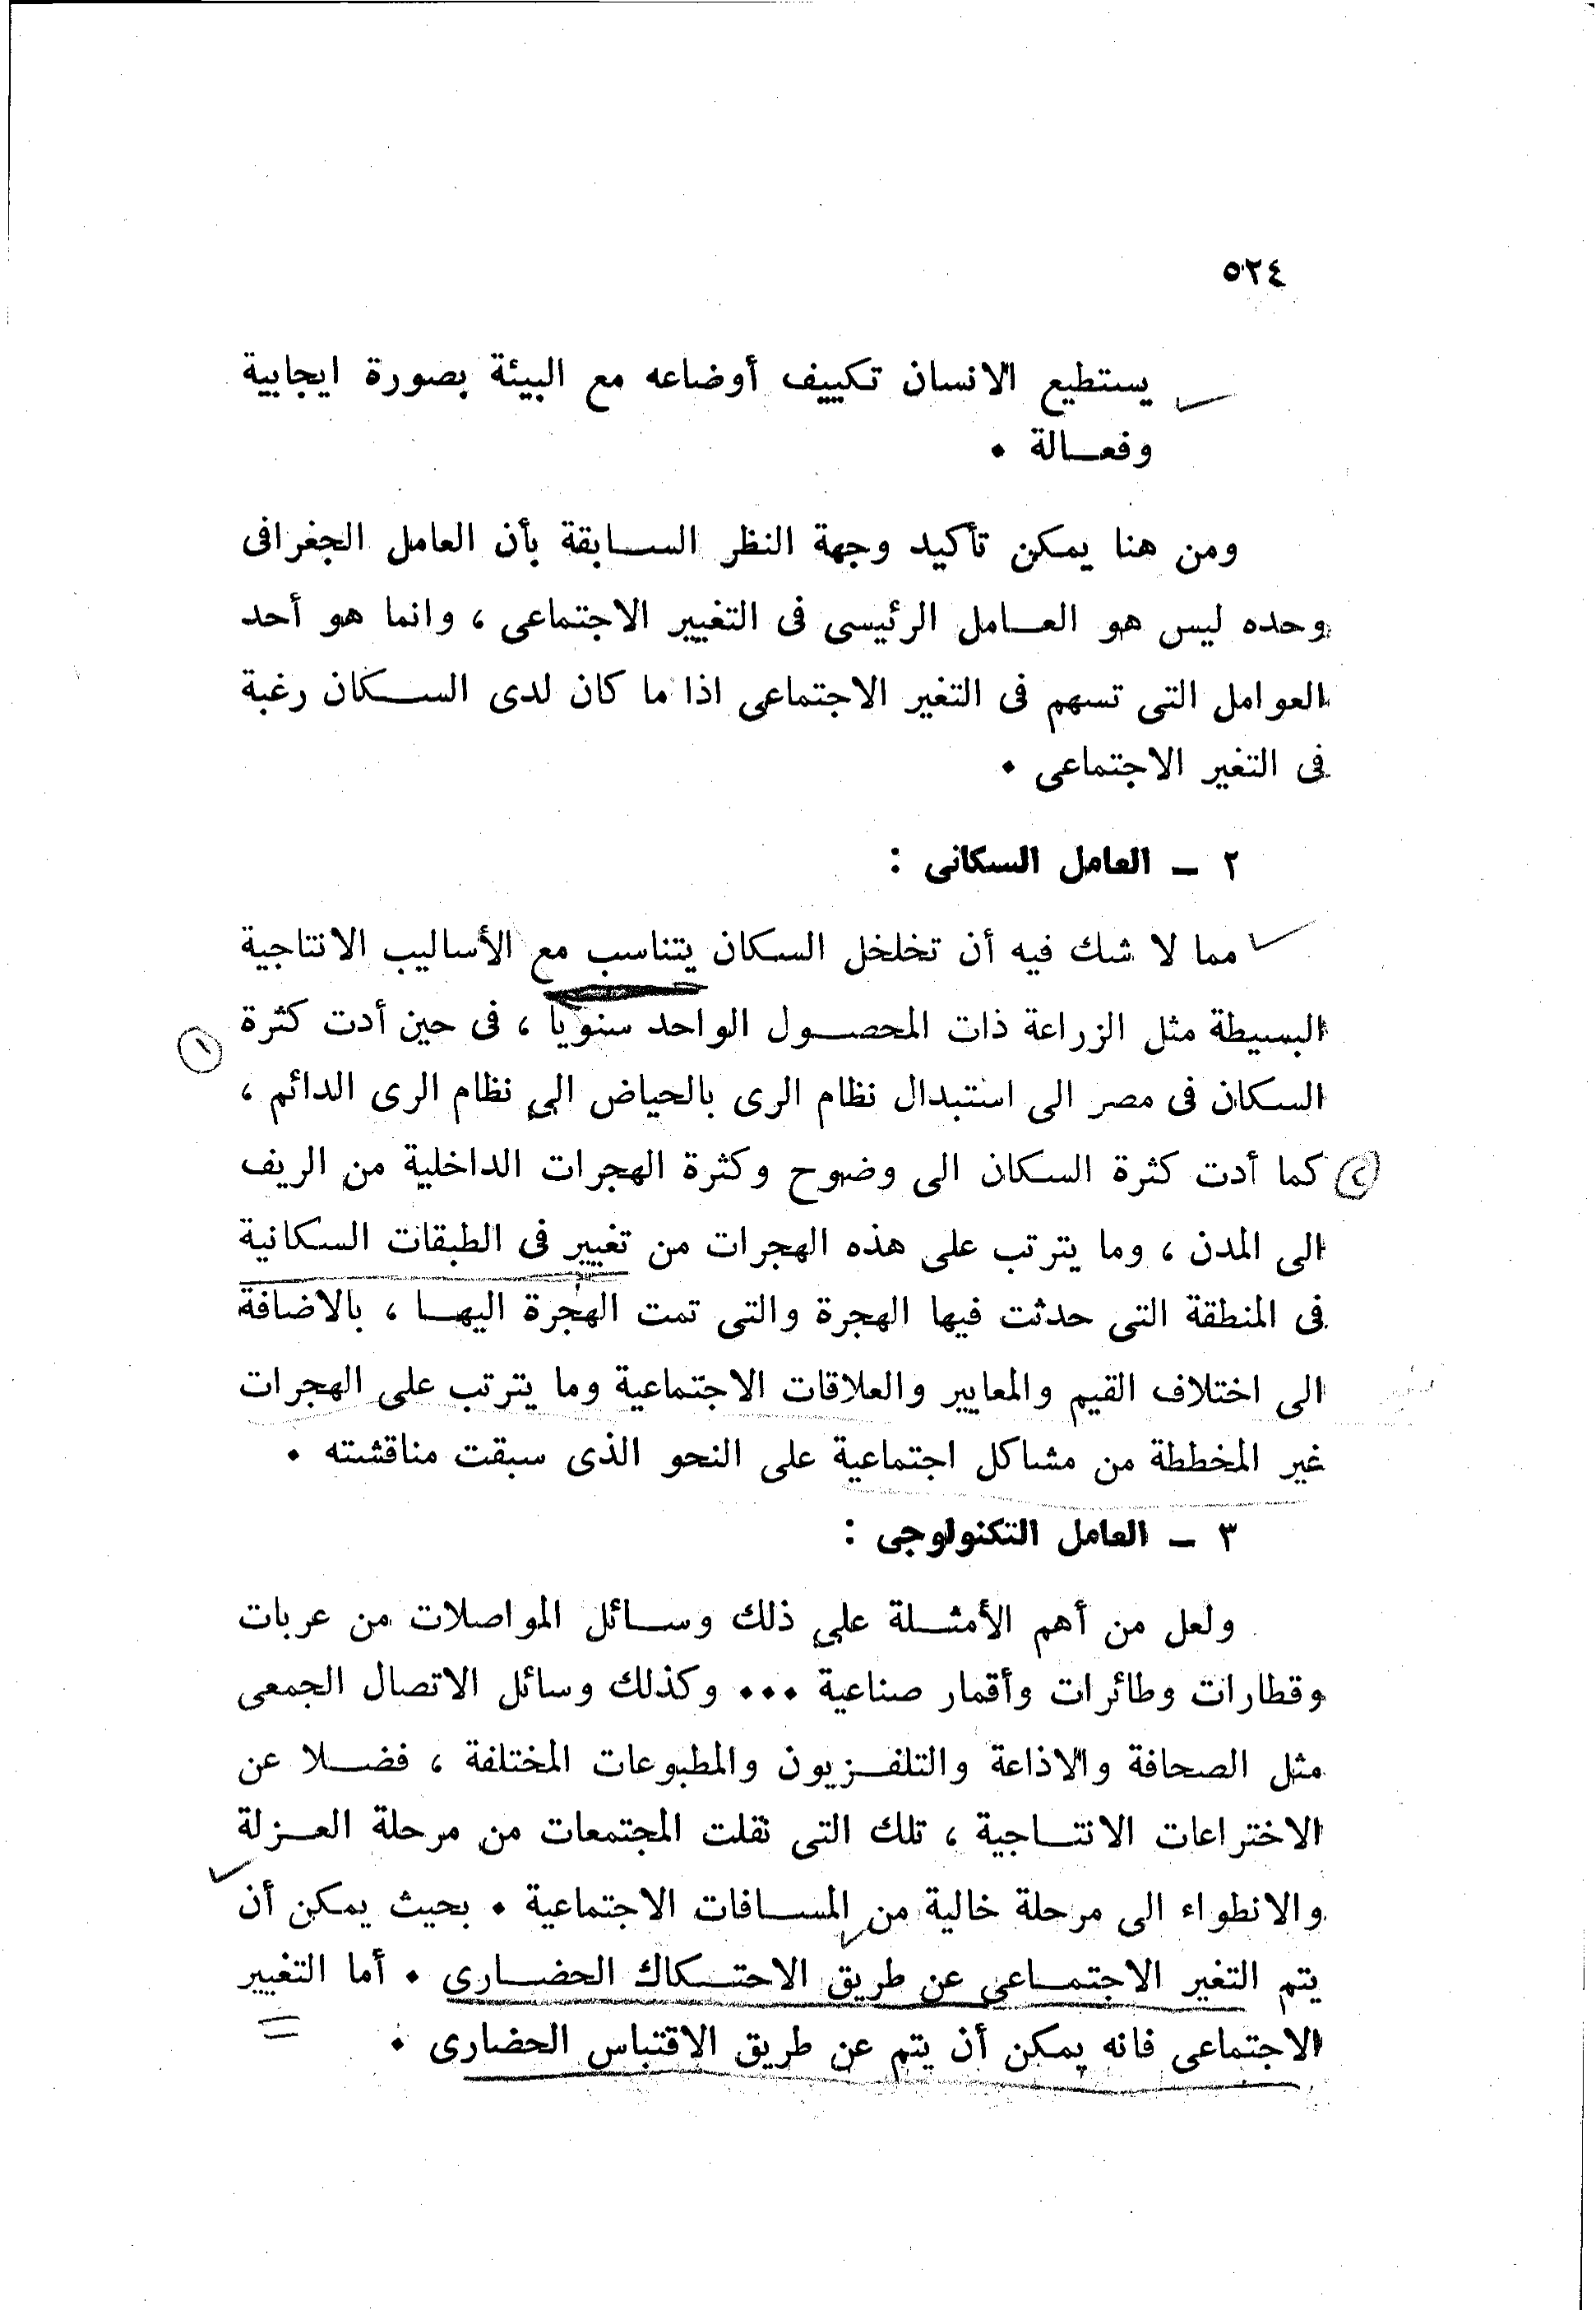 ٥٢٤
يستطيع الانسان تكييف أوضاعه مع البيئة بصورة ايجابية
وفعالة .
ومن هنا يمكن تأكيد وجهة النظر السابقة بأن العامل الجغرافى
وحده ليس هو العامل الرئيسى فى التغيير الاجتماعى ، وانما هو أحد
العوامل التى تسهم فى التغير الاجتماعى اذا ما كان لدى السكان رغبة
فى التغير الاجتماعى .
٢ ـ العامل السكانى :
مما لا شك فيه أن تخلخل السكان يتناسب مع الأساليب الانتاجية
البسيطة مثل الزراعة ذات المحصول الواحد سنويا ، فى حين أدت كثرة
١
السكان فى مصر الى استبدال نظام الرى بالحياض الى نظام الرى الدائم ،
٢
كما أدت كثرة السكان الى وضوح وكثرة الهجرات الداخلية من الريف
الى المدن ، وما يترتب على هذه الهجرات من تغيير فى الطبقات السكانية
فى المنطقة التى حدثت فيها الهجرة والتى تمت الهجرة اليها ، بالاضافة
الى اختلاف القيم والمعايير والعلاقات الاجتماعية وما يترتب على الهجرات
غير المخططة من مشاكل اجتماعية على النحو الذى سبقت مناقشته .
٣ ـ العامل التكنولوجى :
ولعل من أهم الأمثلة على ذلك وسائل المواصلات من عربات
وقطارات وطائرات وأقمار صناعية ... وكذلك وسائل الاتصال الجمعى
مثل الصحافة والاذاعة والتلفزيون والمطبوعات المختلفة ، فضلا عن
الاختراعات الانتاجية ، تلك التى نقلت المجتمعات من مرحلة العزلة
والانطواء الى مرحلة خالية من المسافات الاجتماعية . بحيث يمكن أن
يتم التغير الاجتماعى عن طريق الاحتكاك الحضارى . أما التغيير
الاجتماعى فانه يمكن أن يتم عن طريق الاقتباس الحضارى .